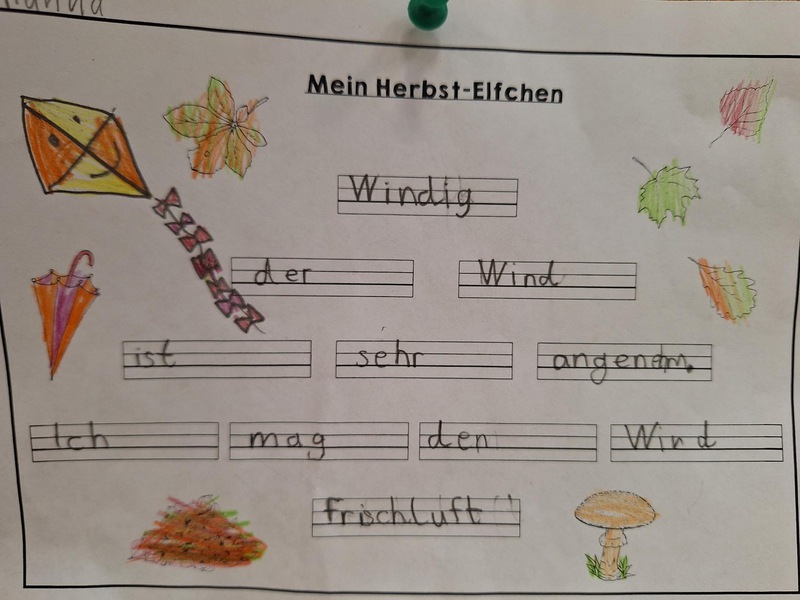 Mein Herbst-Elfchen
Windig
der Wind
ist sehr angenehm.
Ich mag den Wind
frischluft